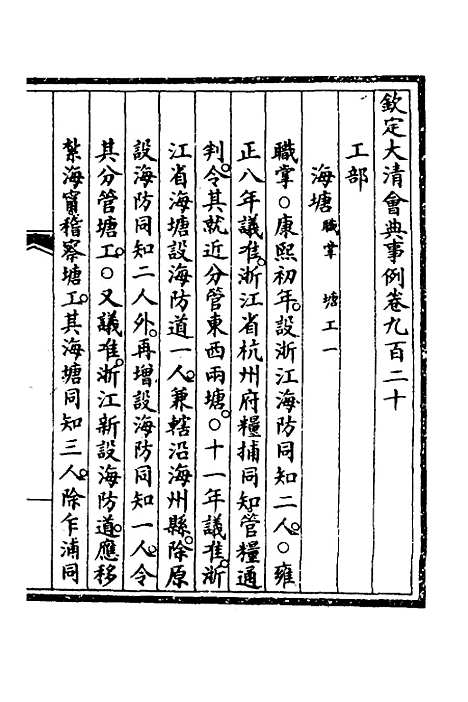 欽定大清會典事例卷九百二十
工部
海塘 職掌 塘工一
職掌○康熙初年設浙江海防同知二人○雍
正八年議准浙江省杭州府糧捕同知管糧通
判令其就近分管東西兩塘○十一年議准浙
江省海塘設海防道一人兼轄沿海州縣除原
設海防同知二人外再增設海防同知一人令
其分管塘工○又議准浙江新設海防道應移
紮海寧稽察塘工其海塘同知三人除乍浦同